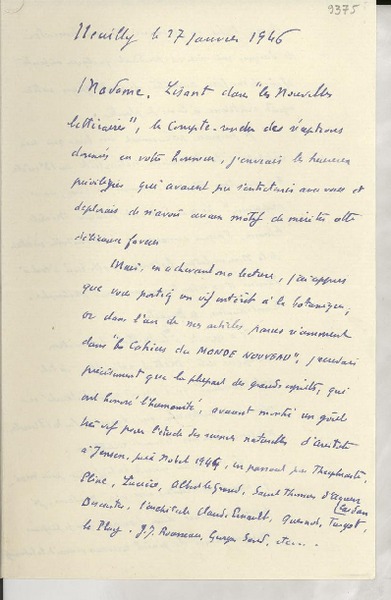 9375
Neuilly le 27 janvier 1946
Madame. Lisant dans "les Nouvelles
littéraires", le compte-rendu des réceptions
donnés en votre honneur, j'enviais les heureux
privilégiés qui avaient pu s'entretenir avec vous et
déplorais de n'avoir aucun motif de mériter cette
précieuse faveur
Mais, en achevant ma lecture, j'ai appris
que vous portiez un vif intérêt à la botanique,
or dans l'un de mes articles parus récemment
dans "les Cahiers du MONDE NOUVEAU", je
précisément que la plupart des grands esprits, qui
ont honoré l'humanité, avaient montré un goût
très vif pour l'étude des sciences naturelles d'Aristote
à Jensen, prix Nobel 1944, en passant par Théophraste,
Pline, Lucrèce, Albert le Grand, Saint Thomas d'Aquin
Cardan
Descartes, l'architecte Claude Perrault, Quesnay, Turgot,
le Play, J.J. Rousseau, George Sand, etc...